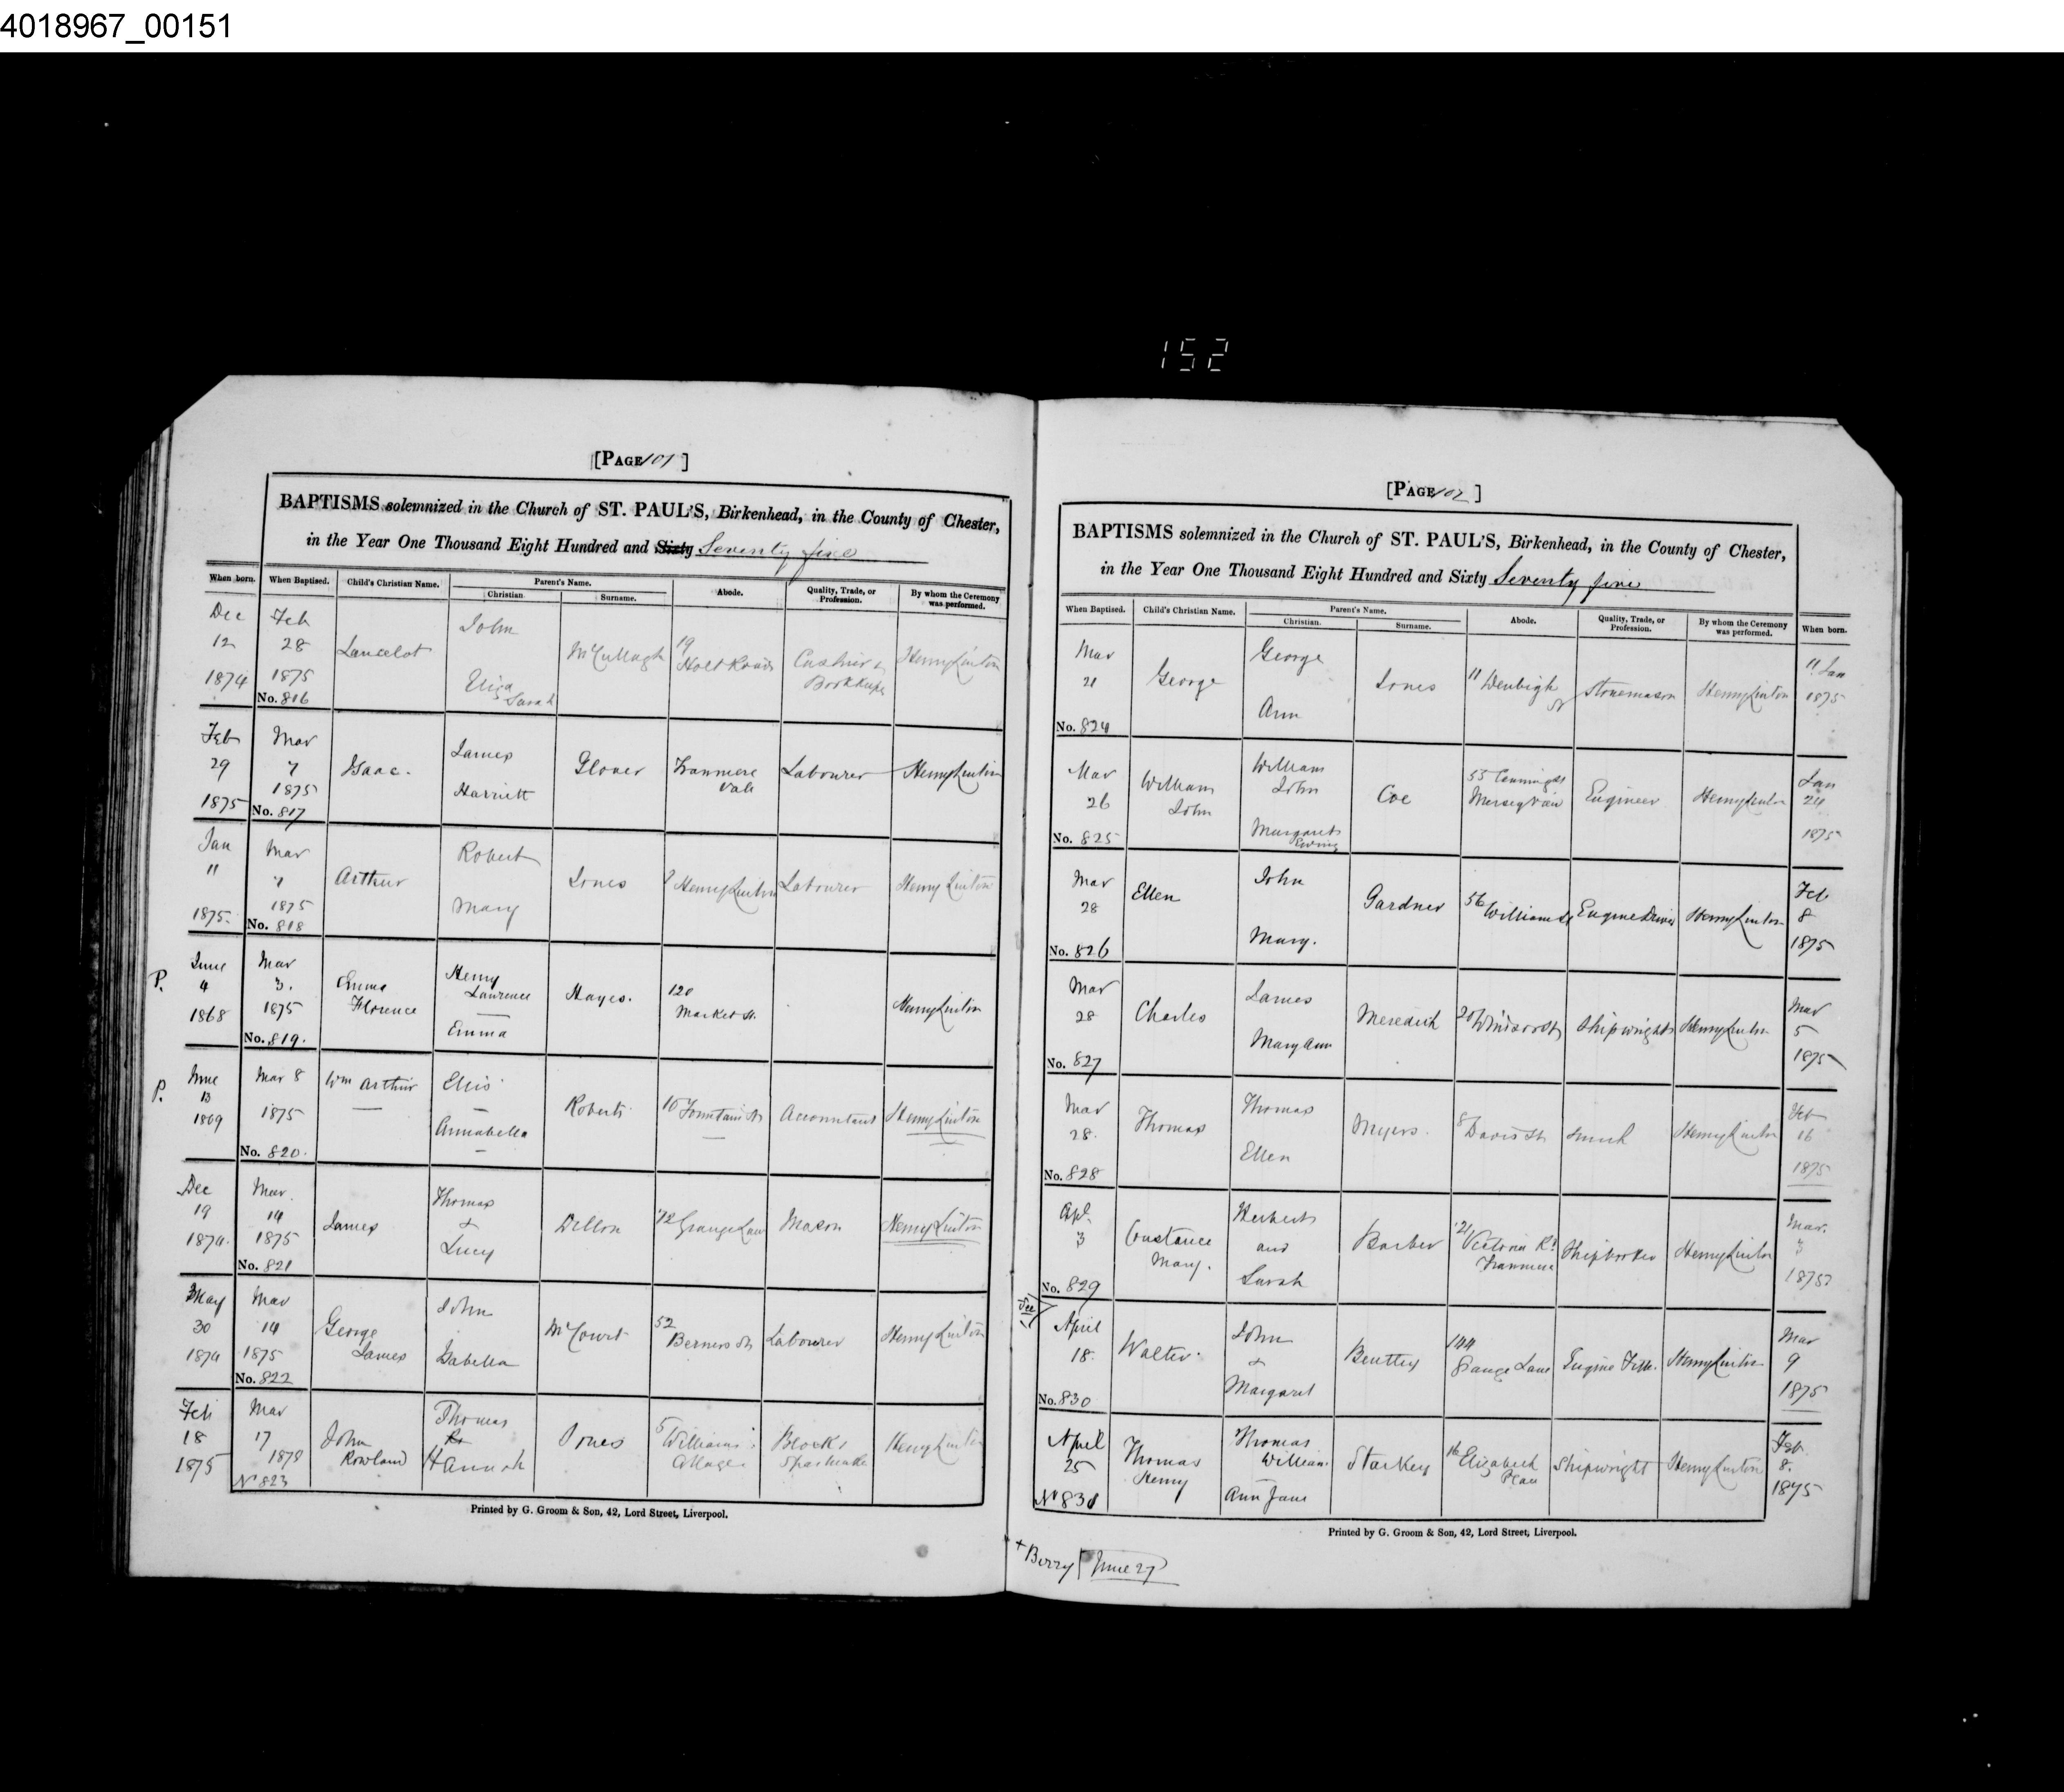 4018967_00151
152
[PAGE 101]
BAPTISMS solemnized in the Church of ST. PAUL'S, Birkenhead, in the County of Chester,
in the Year One Thousand Eight Hundred and Sixty Seventy five
When born. When Baptised. Child's Christian Name. Parent's Name. Abode. Quality, Trade, or Profession. By whom the Ceremony was performed.
Christian. Surname.
Dec 12 1874 Feb 28 1875 No. 816 Lancelot John Eliza Sarah McCullagh 19 Holt Road Cashier & Bookkeeper Henry Linton
Feb 29 1875 Mar 7 1875 No. 817 Isaac. James Harriett Glover Tranmere Vale Labourer Henry Linton
Jan 11 1875. Mar 7 1875 No. 818 Arthur Robert Mary Jones Labourer Henry Linton
P. June 4 1868 Mar 3. 1875 No. 819. Emma Florence Henry Lawrence Emma Hayes. 120 Market St. Henry Linton
P. June 13 1869 Mar 8 1875 No. 820. Wm Arthur Ellis Annabella Roberts 10 Fountain St Accountant Henry Linton
Dec 19 1874. Mar. 14 1875 No. 821 James Thomas & Lucy Dillon 72 Grange Lane Mason Henry Linton
May 30 1874 Mar 14 1875 No. 822 George James John Isabella McCourt 52 Berners St Labourer Henry Linton
Feb 18 1875 Mar 17 1878 No 823 John Rowland Thomas Hannah Jones 5 Williams Cottages Block & Sparmaker Henry Linton
Printed by G. Groom & Son, 42, Lord Street, Liverpool.
[PAGE 102]
BAPTISMS solemnized in the Church of ST. PAUL'S, Birkenhead, in the County of Chester,
in the Year One Thousand Eight Hundred and Sixty Seventy five
When Baptised. Child's Christian Name. Parent's Name. Abode. Quality, Trade, or Profession. By whom the Ceremony was performed. When born.
Christian. Surname.
Mar 21 No. 824 George George Ann Jones 11 Denbigh St Stonemason Henry Linton 11 Jan 1875
Mar 26 No. 825 William John William John Margaret Coe 55 Canning St Mersey View Engineer Henry Linton Jan 24 1875
Mar 28 No. 826 Ellen John Mary. Gardner 56 William St Engine Driver Henry Linton Feb 8 1875
Mar 28 No. 827 Charles James Mary Ann Meredith 20 Windsor St Shipwright Henry Linton Mar 5 1875
Mar 28. No. 828 Thomas Thomas Ellen Myers. 8 Davis St Smith Henry Linton Feb 16 1875
Apl. 3 No. 829 Constance Mary. Herbert and Sarah Barber 21 Victoria Rd Tranmere Shipbroker Henry Linton Mar. 3 1875
See April 18. No. 830 Walter. John & Margaret Bentley 144 Grange Lane Engine Fitter Henry Linton Mar 9 1875
April 25 No 831 Thomas Henry Thomas William Ann Jane Starkey 14 Elizabeth Place Shipwright Henry Linton Feb. 8. 1875
Printed by G. Groom & Son, 42, Lord Street, Liverpool.
+ Berry June 27